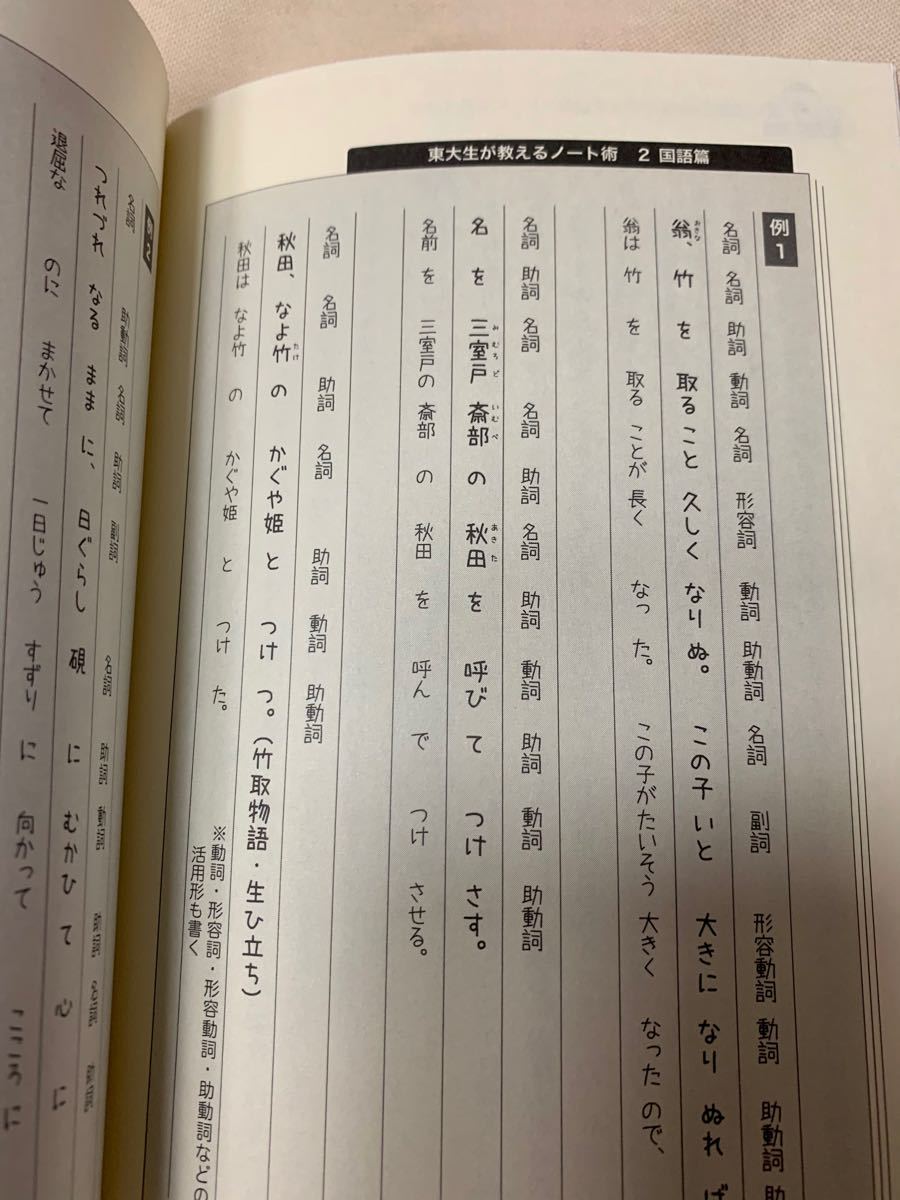 東大生が教えるノート術 2 国語篇
例1
名詞 名詞 助詞 動詞 名詞 形容詞 動詞 助動詞 名詞 副詞 形容動詞 動詞 助動詞 助
おきな
翁、竹 を 取る こと 久しく なり ぬ。 この子 いと 大きに なり ぬれ ば
翁は 竹 を 取る ことが 長く なっ た。 この子が たいそう 大きく なった ので、
名詞 助詞 名詞 名詞 助詞 名詞 助詞 動詞 助詞 動詞 助動詞
みむろど いむべ あきた
名 を 三室戸 斎部 の 秋田 を 呼び て つけ さす。
名前 を 三室戸の 斎部 の 秋田 を 呼ん で つけ させる。
名詞 名詞 助詞 名詞 助詞 動詞 助動詞
たけ
秋田、 なよ竹 の かぐや姫 と つけ つ。(竹取物語・生ひ立ち)
秋田は なよ竹 の かぐや姫 と つけ た。
※動詞・形容詞・形容動詞・助動詞などの
活用形も書く
例2
名詞 助動詞 名詞 助詞 副詞 名詞 助詞 動詞
つれづれ なる まま に、 日ぐらし 硯 に むかひ て 心 に
退屈な のに まかせて 一日じゅう すずり に 向かって こころに